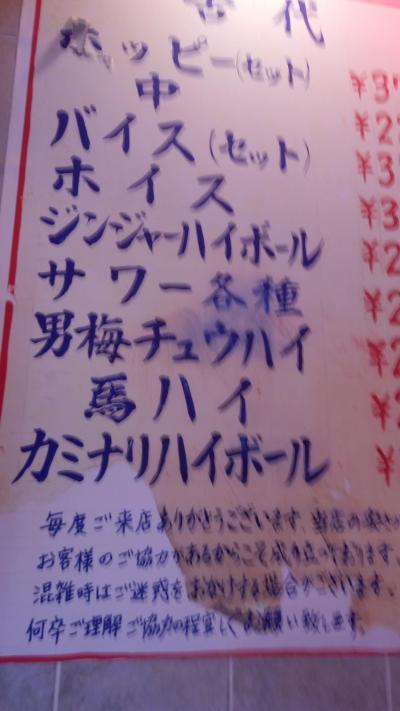 古代
ホッピー(セット) ¥37
中 ¥2
バイス(セット) ¥3
ホイス ¥3
ジンジャーハイボール ¥2
サワー各種 ¥2
男梅チュウハイ ¥2
馬ハイ ¥2
カミナリハイボール ¥
毎度ご来店ありがとうございます、当店の安さ
お客様のご協力があるからこそ成り立っております。
混雑時はご迷惑をおかけする場合がございます。
何卒ご理解ご協力の程宜しくお願い致します。